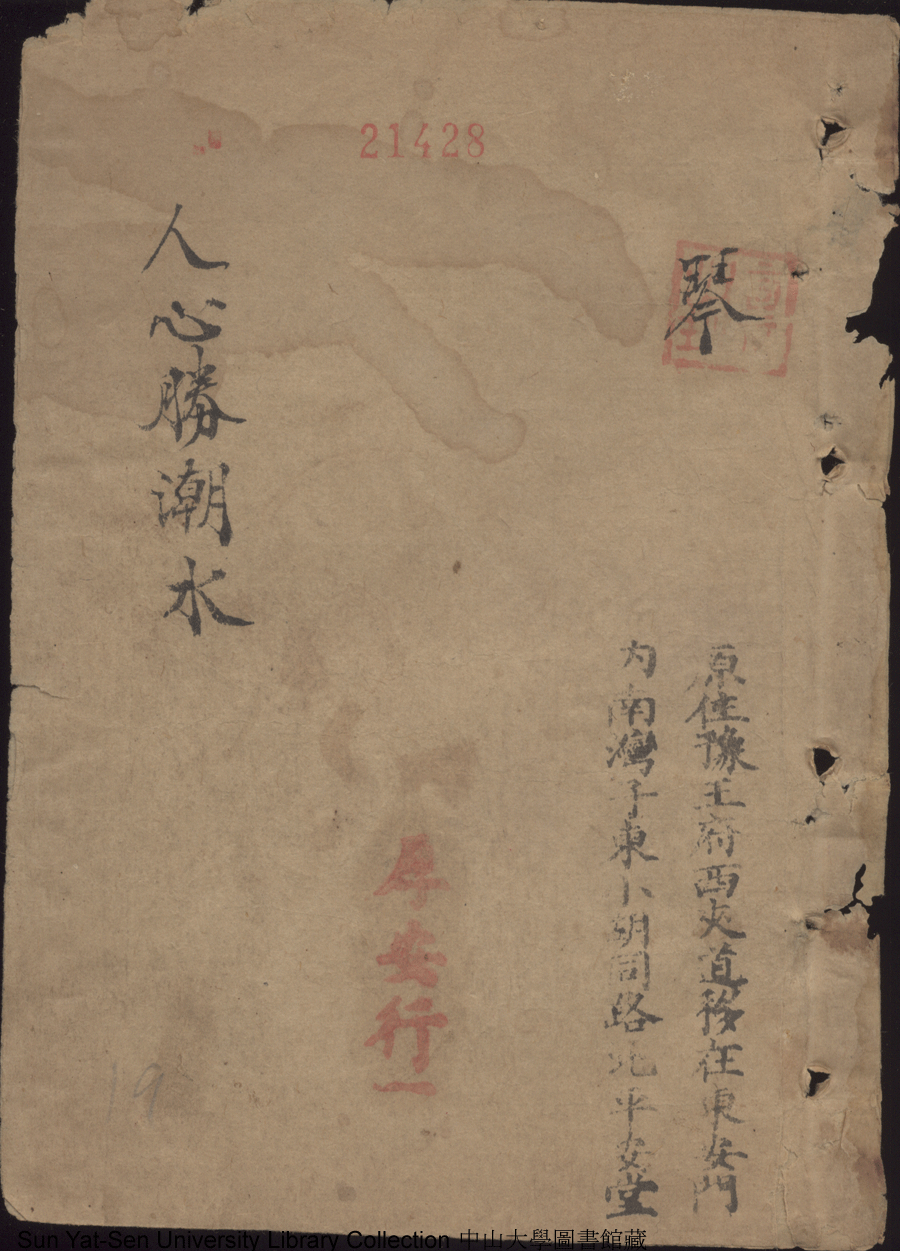 21428
琴
原住豫王府西夾道移在東安門
内南灣子東小胡同路北平安堂
厚安行一
人心勝潮水
19
Sun Yat-Sen University Library Collection 中山大學圖書館藏